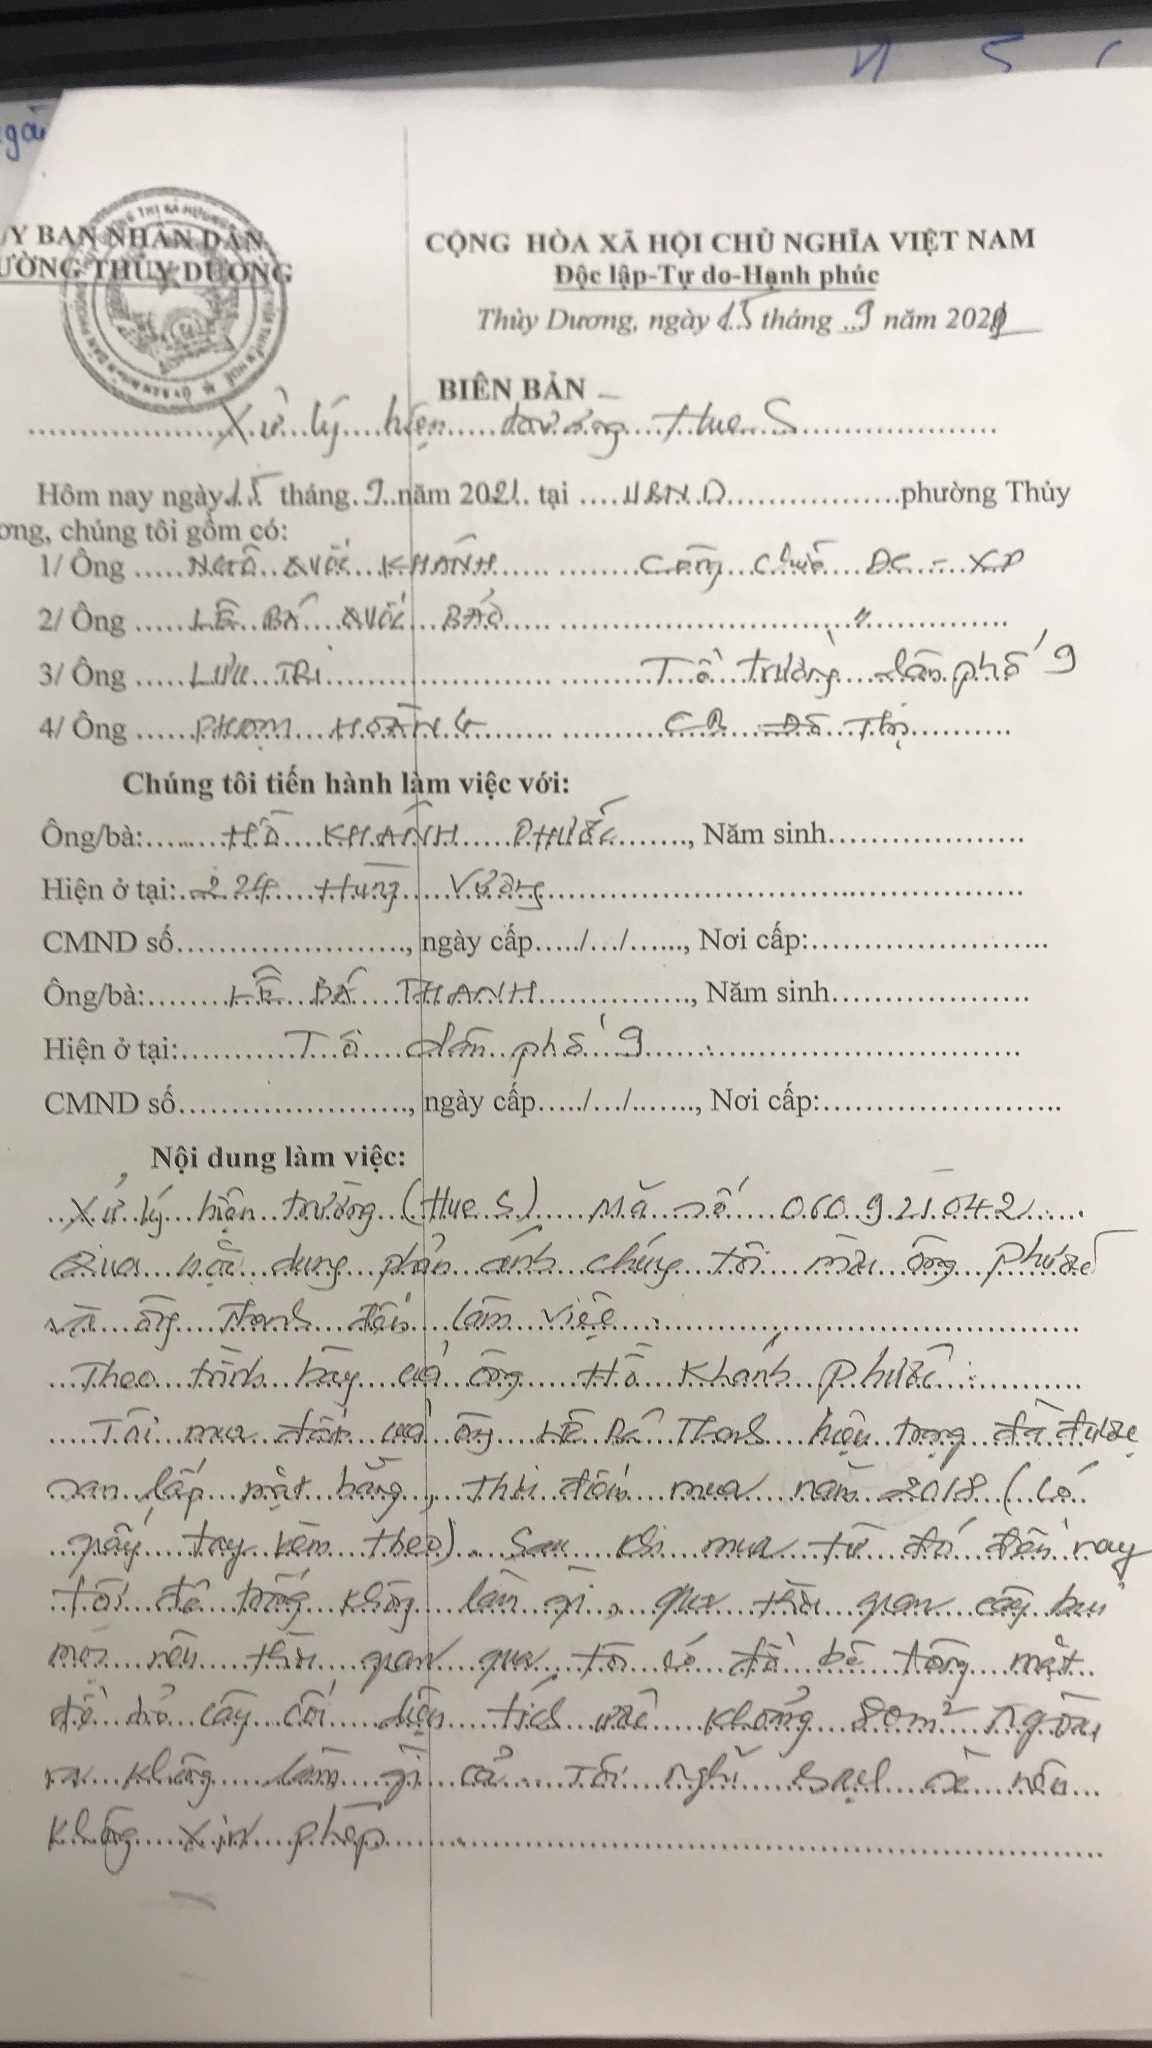 gai
Y BAN NHÂN DÂN
ƯỜNG THỦY DƯƠNG
CỘNG HÒA XÃ HỘI CHỦ NGHĨA VIỆT NAM
Độc lập-Tự do-Hạnh phúc
Thủy Dương, ngày 15 tháng 9 năm 2021
BIÊN BẢN
Xử lý hiện dương Hue S
Hôm nay ngày 15 tháng 9 năm 2021 tại UBND phường Thủy
ơng, chúng tôi gồm có:
1/ Ông NGÔ QUỐC KHÁNH Công Chức ĐC - XD
2/ Ông LÊ BÁ QUỐC BẢO "
3/ Ông LƯU TRI Tổ trưởng dân phố 9
4/ Ông PHẠM HOÀNG CB Đô Thị
Chúng tôi tiến hành làm việc với:
Ông/bà: HỒ KHÁNH PHƯỚC, Năm sinh
Hiện ở tại: 224 Hùng Vương
CMND số, ngày cấp / /, Nơi cấp:
Ông/bà: LÊ BÁ THANH, Năm sinh
Hiện ở tại: Tổ dân phố 9
CMND số, ngày cấp / /, Nơi cấp:
Nội dung làm việc:
Xử lý hiện trường (Hue S) Mã số 060921042
Qua nội dung phản ánh chúng tôi mời ông Phước
và ông Thanh đến làm việc.
Theo trình bày của ông Hồ Khánh Phước:
Tôi mua đất của ông Lê Bá Thanh hiện trạng đã được
san lấp mặt bằng, thời điểm mua năm 2018 (có
giấy tay kèm theo). Sau khi mua từ đó đến nay
tôi để trống không làm gì, qua thời gian cây bụi
mọc nên thời gian qua tôi có đổ bê tông mặt
để bỏ cây cối diện tích khoảng 80m² ngoài
ra không làm gì cả. Tôi nghĩ sạch sẽ nên
không xin phép